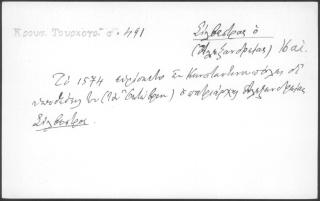 Κρουσ. Τουρκογρ. σ. 491
Σίλβεστρος ὁ
(Ἀλεξανδρείας) 16 αἰ.
Τῷ 1574 εὑρίσκετο ἐν Κωνσταντινουπόλει δι'
ὑποθέσεις του ὁ πατριάρχης Ἀλεξανδρείας
Σίλβεστρος.